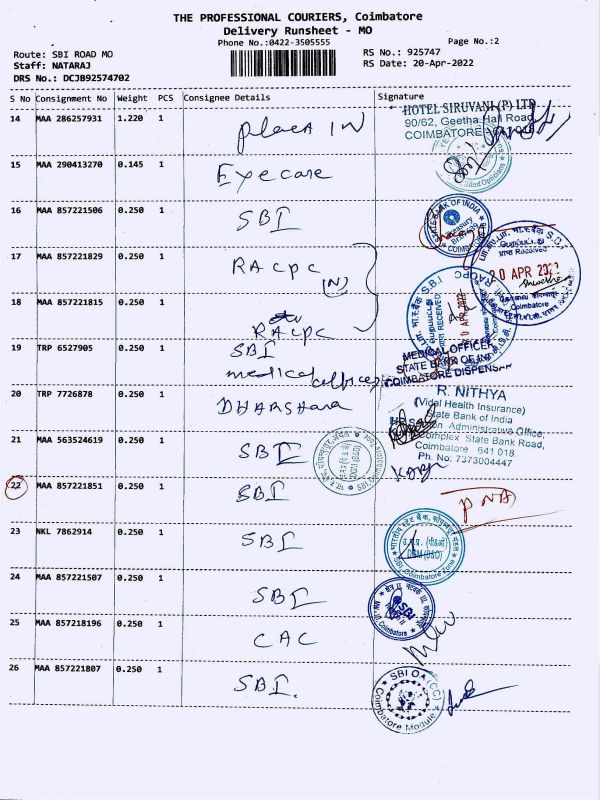 THE PROFESSIONAL COURIERS, Coimbatore
Delivery Runsheet - MO
Phone No.:0422-3505555
Page No.:2
Route: SBI ROAD MO
Staff: NATARAJ
DRS No.: DCJB92574702
RS No.: 925747
RS Date: 20-Apr-2022
S No Consignment No Weight PCS Consignee Details Signature
14 MAA 286257931 1.220 1 place IN
HOTEL SIRUVANI (P) LTD
90/62, Geetha Hall Road
COIMBATORE
15 MAA 290413270 0.145 1 Eyecare
16 MAA 857221506 0.250 1 SBI
STATE BANK OF INDIA
Treasury Branch
COIMBATORE
17 MAA 857221829 0.250 1 RACPC
(N)
பெறப்பட்டது
प्राप्त Received
20 APR 2022
Coimbatore
18 MAA 857221815 0.250 1 RACPC
RACPC S.B.I.
RECEIVED
19 TRP 6527905 0.250 1 SBI
medical officer
MEDICAL OFFICER
STATE BANK OF INDIA
COIMBATORE DISPENSARY
20 TRP 7726878 0.250 1 DHARSHana
R. NITHYA
(Vidal Health Insurance)
State Bank of India
Administrative Office,
Complex State Bank Road,
Coimbatore 641 018.
Ph. No: 7373004447
21 MAA 563524619 0.250 1 SBI
DGM (B&O)
22 MAA 857221851 0.250 1 SBI PNA
23 NKL 7862914 0.250 1 SBI
भारतीय स्टेट बैंक, कोयम्बत्तूर मंडल
DGM (B&O)
SBI Coimbatore Zone
24 MAA 857221507 0.250 1 SBI
SBI
Coimbatore
25 MAA 857218196 0.250 1 CAC
26 MAA 857221807 0.250 1 SBI.
SBI OA (CC)
Coimbatore Module